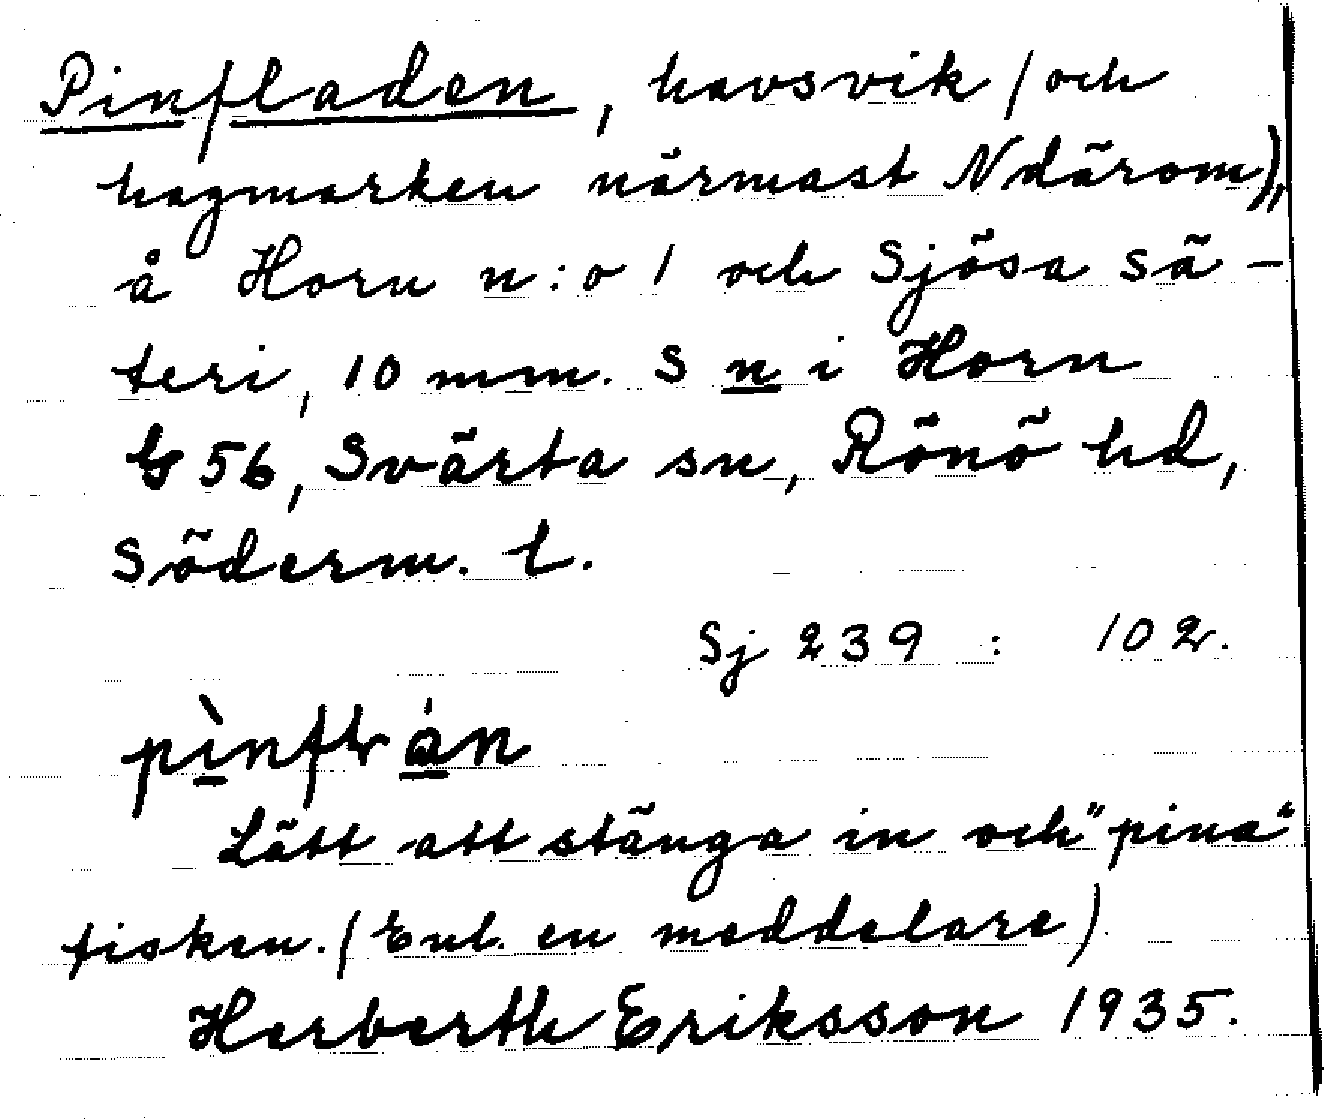 Pinfladen, havsvik (och
hagmarken närmast N därom),
å Horn n:o 1 och Sjösa sä-
teri, 10 mm. S n i Horn
G 56, Svärta sn, Rönö hd,
Söderm. l.
Sj 239 : 102.
Lätt att stänga in och "pina"
fisken. (Enl. en meddelare).
Herberth Eriksson 1935.